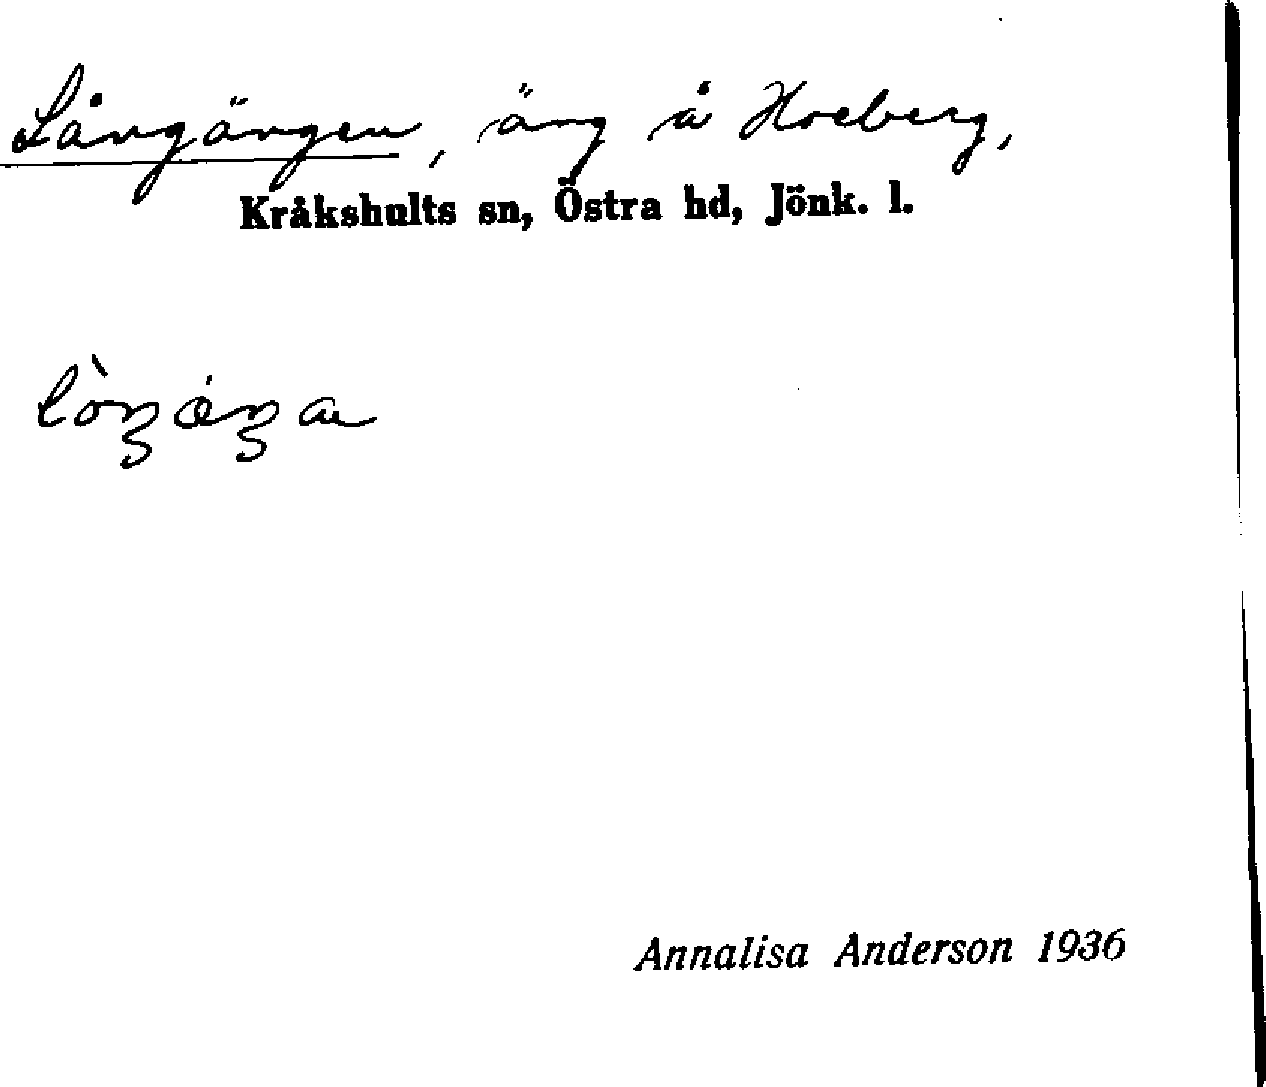 Långängen, äng å Hoeberg,
Kråkshults sn, Östra hd, Jönk. l.
Annalisa Anderson 1936